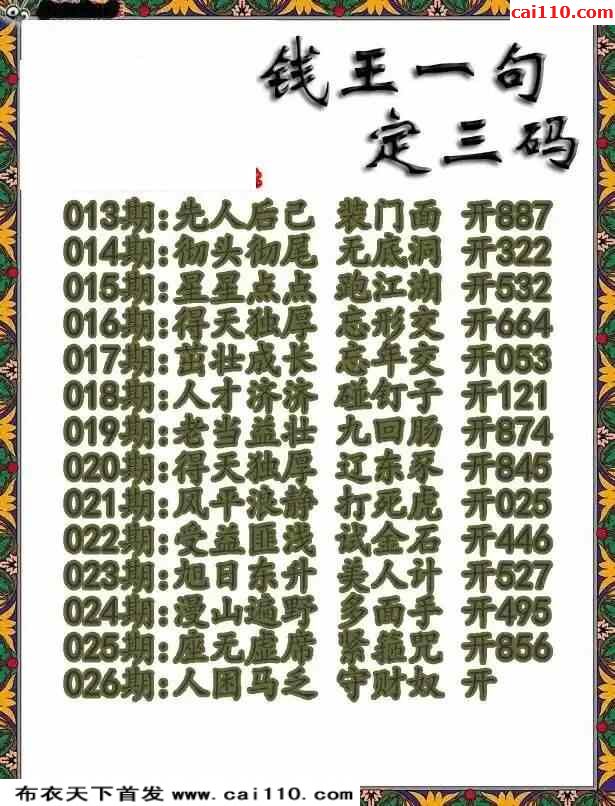 cai110.com
钱王一句
定三码
013期:先人后己 装门面 开887
014期:彻头彻尾 无底洞 开322
015期:星星点点 跑江湖 开532
016期:得天独厚 忘形交 开664
017期:茁壮成长 忘年交 开053
018期:人才济济 碰钉子 开121
019期:老当益壮 九回肠 开874
020期:得天独厚 辽东豕 开845
021期:风平浪静 打死虎 开025
022期:受益匪浅 试金石 开446
023期:旭日东升 美人计 开527
024期:漫山遍野 多面手 开495
025期:座无虚席 紧箍咒 开856
026期:人困马乏 守财奴 开
布衣天下首发 www.cai110.com